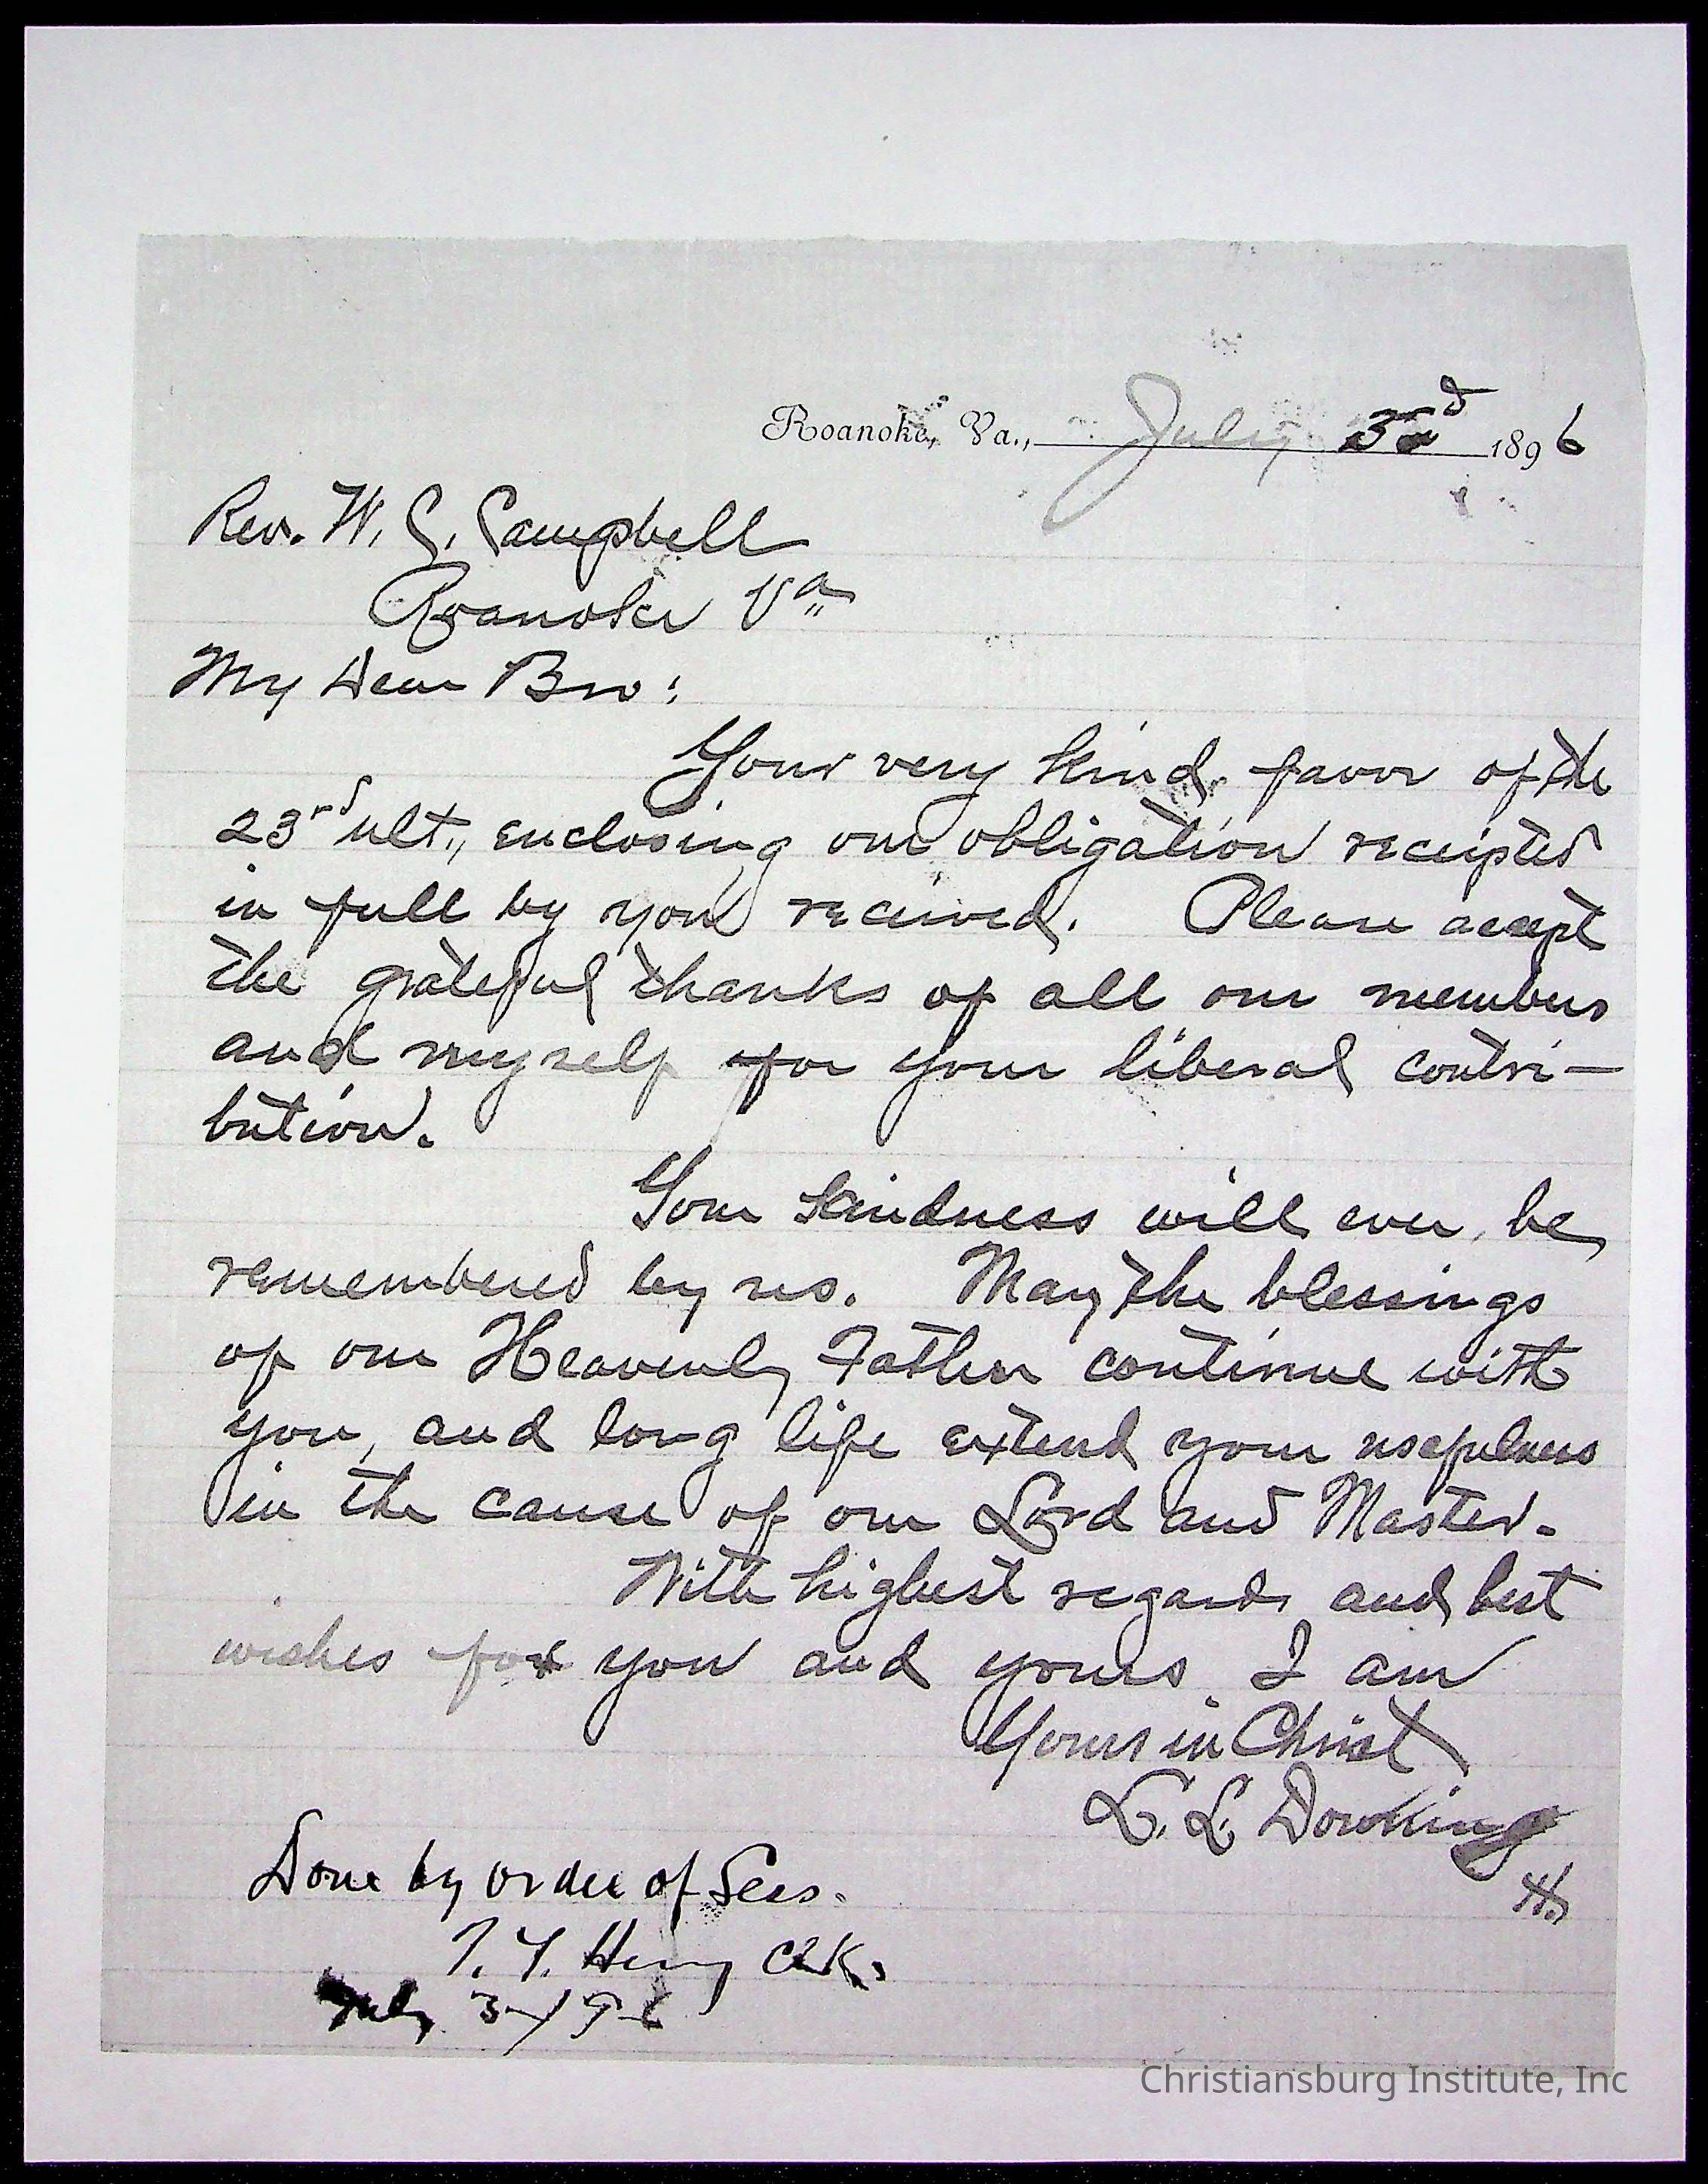 Roanoke, Va., July 3d 1896
Rev. W. C. Campbell
Roanoke Va
My Dear Bro:
Your very kind favor of the
23rd ult., enclosing our obligation receipted
in full by you received. Please accept
the grateful thanks of all our members
and myself for your liberal contri-
bution.
Your kindness will ever be
remembered by us. May the blessings
of our Heavenly Father continue with
you, and long life extend your usefulness
in the cause of our Lord and Master.
With highest regards and best
wishes for you and yours I am
Yours in Christ
L. L. Downing
Done by order of Sess.
T. T. Henry Clk.
July 3/96
Christiansburg Institute, Inc